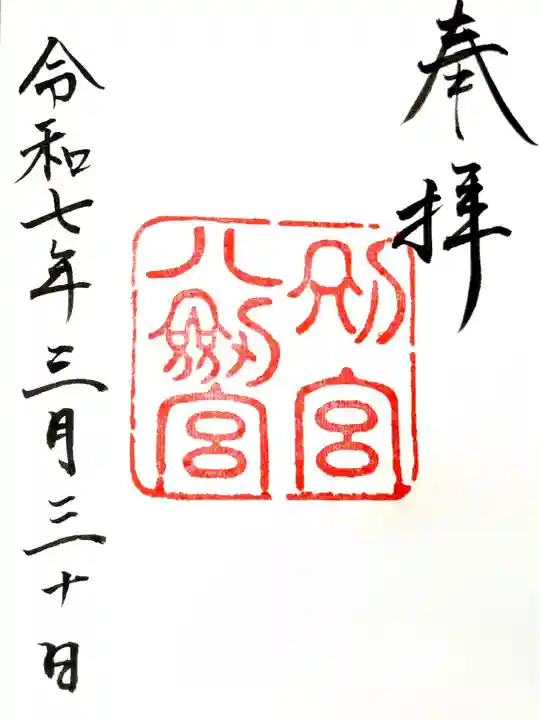 奉拝
別宮
八剱宮
令和七年三月三十日